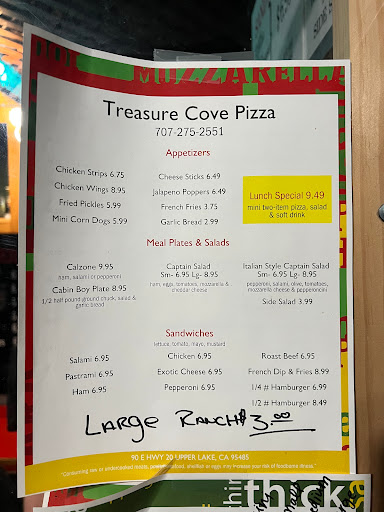 MOZZARELLA
Treasure Cove Pizza
707-275-2551
Appetizers
Chicken Strips 6.75
Chicken Wings 8.95
Fried Pickles 5.99
Mini Corn Dogs 5.99
Cheese Sticks 6.49
Jalapeno Poppers 6.49
French Fries 3.75
Garlic Bread 2.99
Lunch Special 9.49
mini two-item pizza, salad
& soft drink
Meal Plates & Salads
Calzone 9.95
ham, salami or pepperoni
Cabin Boy Plate 8.95
1/2 half pound ground chuck, salad &
garlic bread
Captain Salad
Sm- 6.95 Lg- 8.95
ham, eggs, tomatoes, mozzarella &
cheddar cheese
Italian Style Captain Salad
Sm- 6.95 Lg- 8.95
pepperoni, salami, olive, tomatoes,
mozzarella cheese & pepperoncini
Side Salad 3.99
Sandwiches
lettuce, tomato, mayo, mustard
Salami 6.95
Pastrami 6.95
Ham 6.95
Chicken 6.95
Exotic Cheese 6.95
Pepperoni 6.95
Roast Beef 6.95
French Dip & Fries 8.99
1/4 # Hamburger 6.99
1/2 # Hamburger 8.49
LARGE RANCH $3.00
90 E HWY 20 UPPER LAKE, CA 95485
"Consuming raw or undercooked meats, poultry, seafood, shellfish or eggs may increase your risk of foodborne illness."
thick